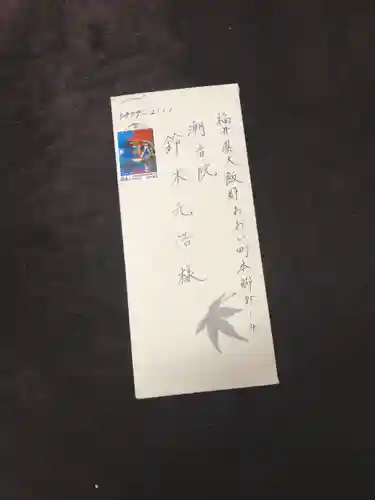 919-2111
福井県大飯郡おおい町本郷85-4
潮音院
鈴木元浩様